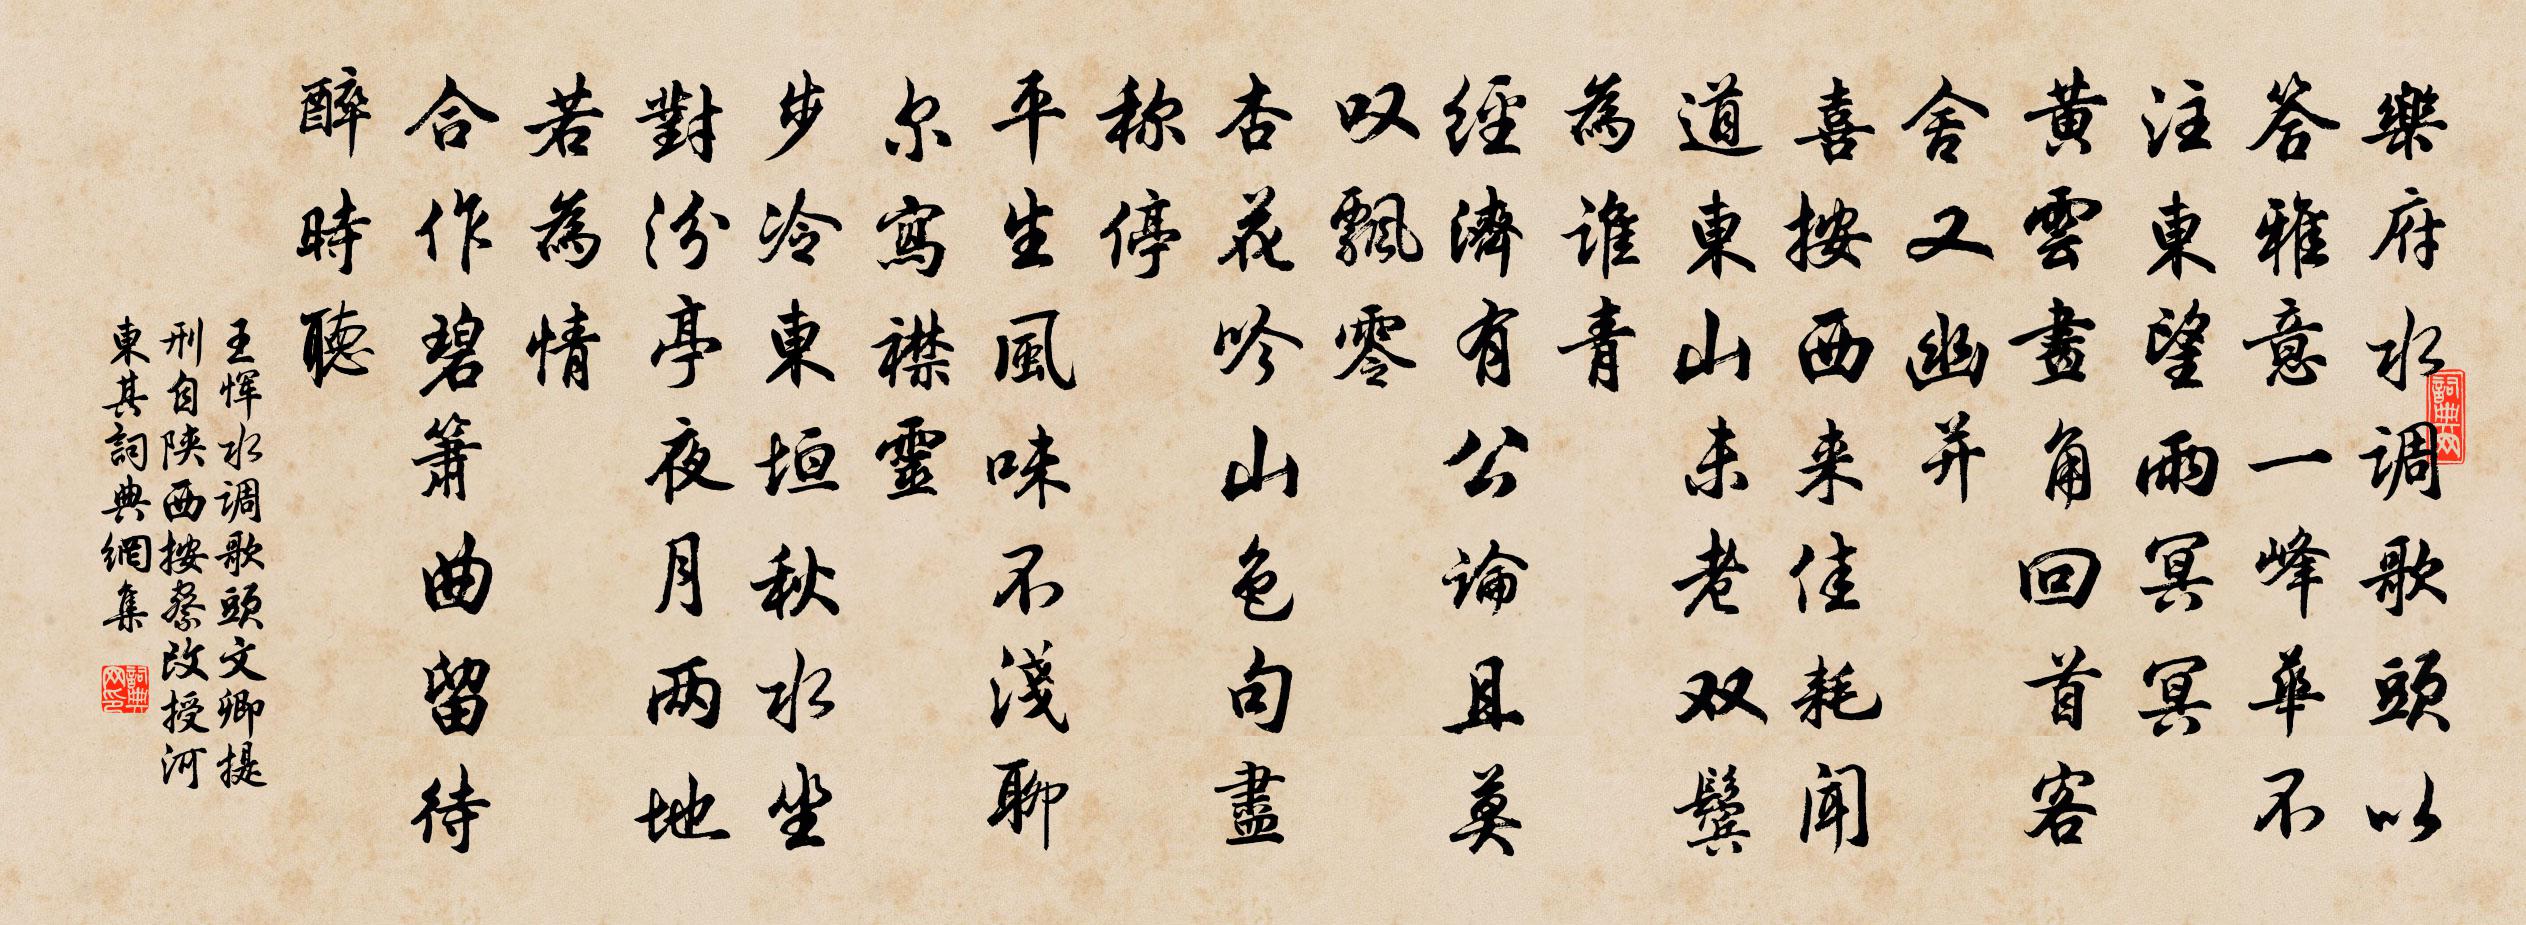 樂府水调歌頭以
答雅意一峰華不
注東望雨冥冥
黄雲畫角回首客
舍又幽并
喜按西来佳耗闻
道東山未老双鬓
為谁青
經濟有公論且莫
叹飄零
杏花吟山色句盡
称停
平生風味不淺聊
尔寫襟靈
步冷東垣秋水坐
對汾亭夜月两地
若為情
合作碧簫曲留待
醉時聽
王恽水调歌頭文卿提
刑自陕西按察改授河
東其詞典網集
詞典网
詞典网印